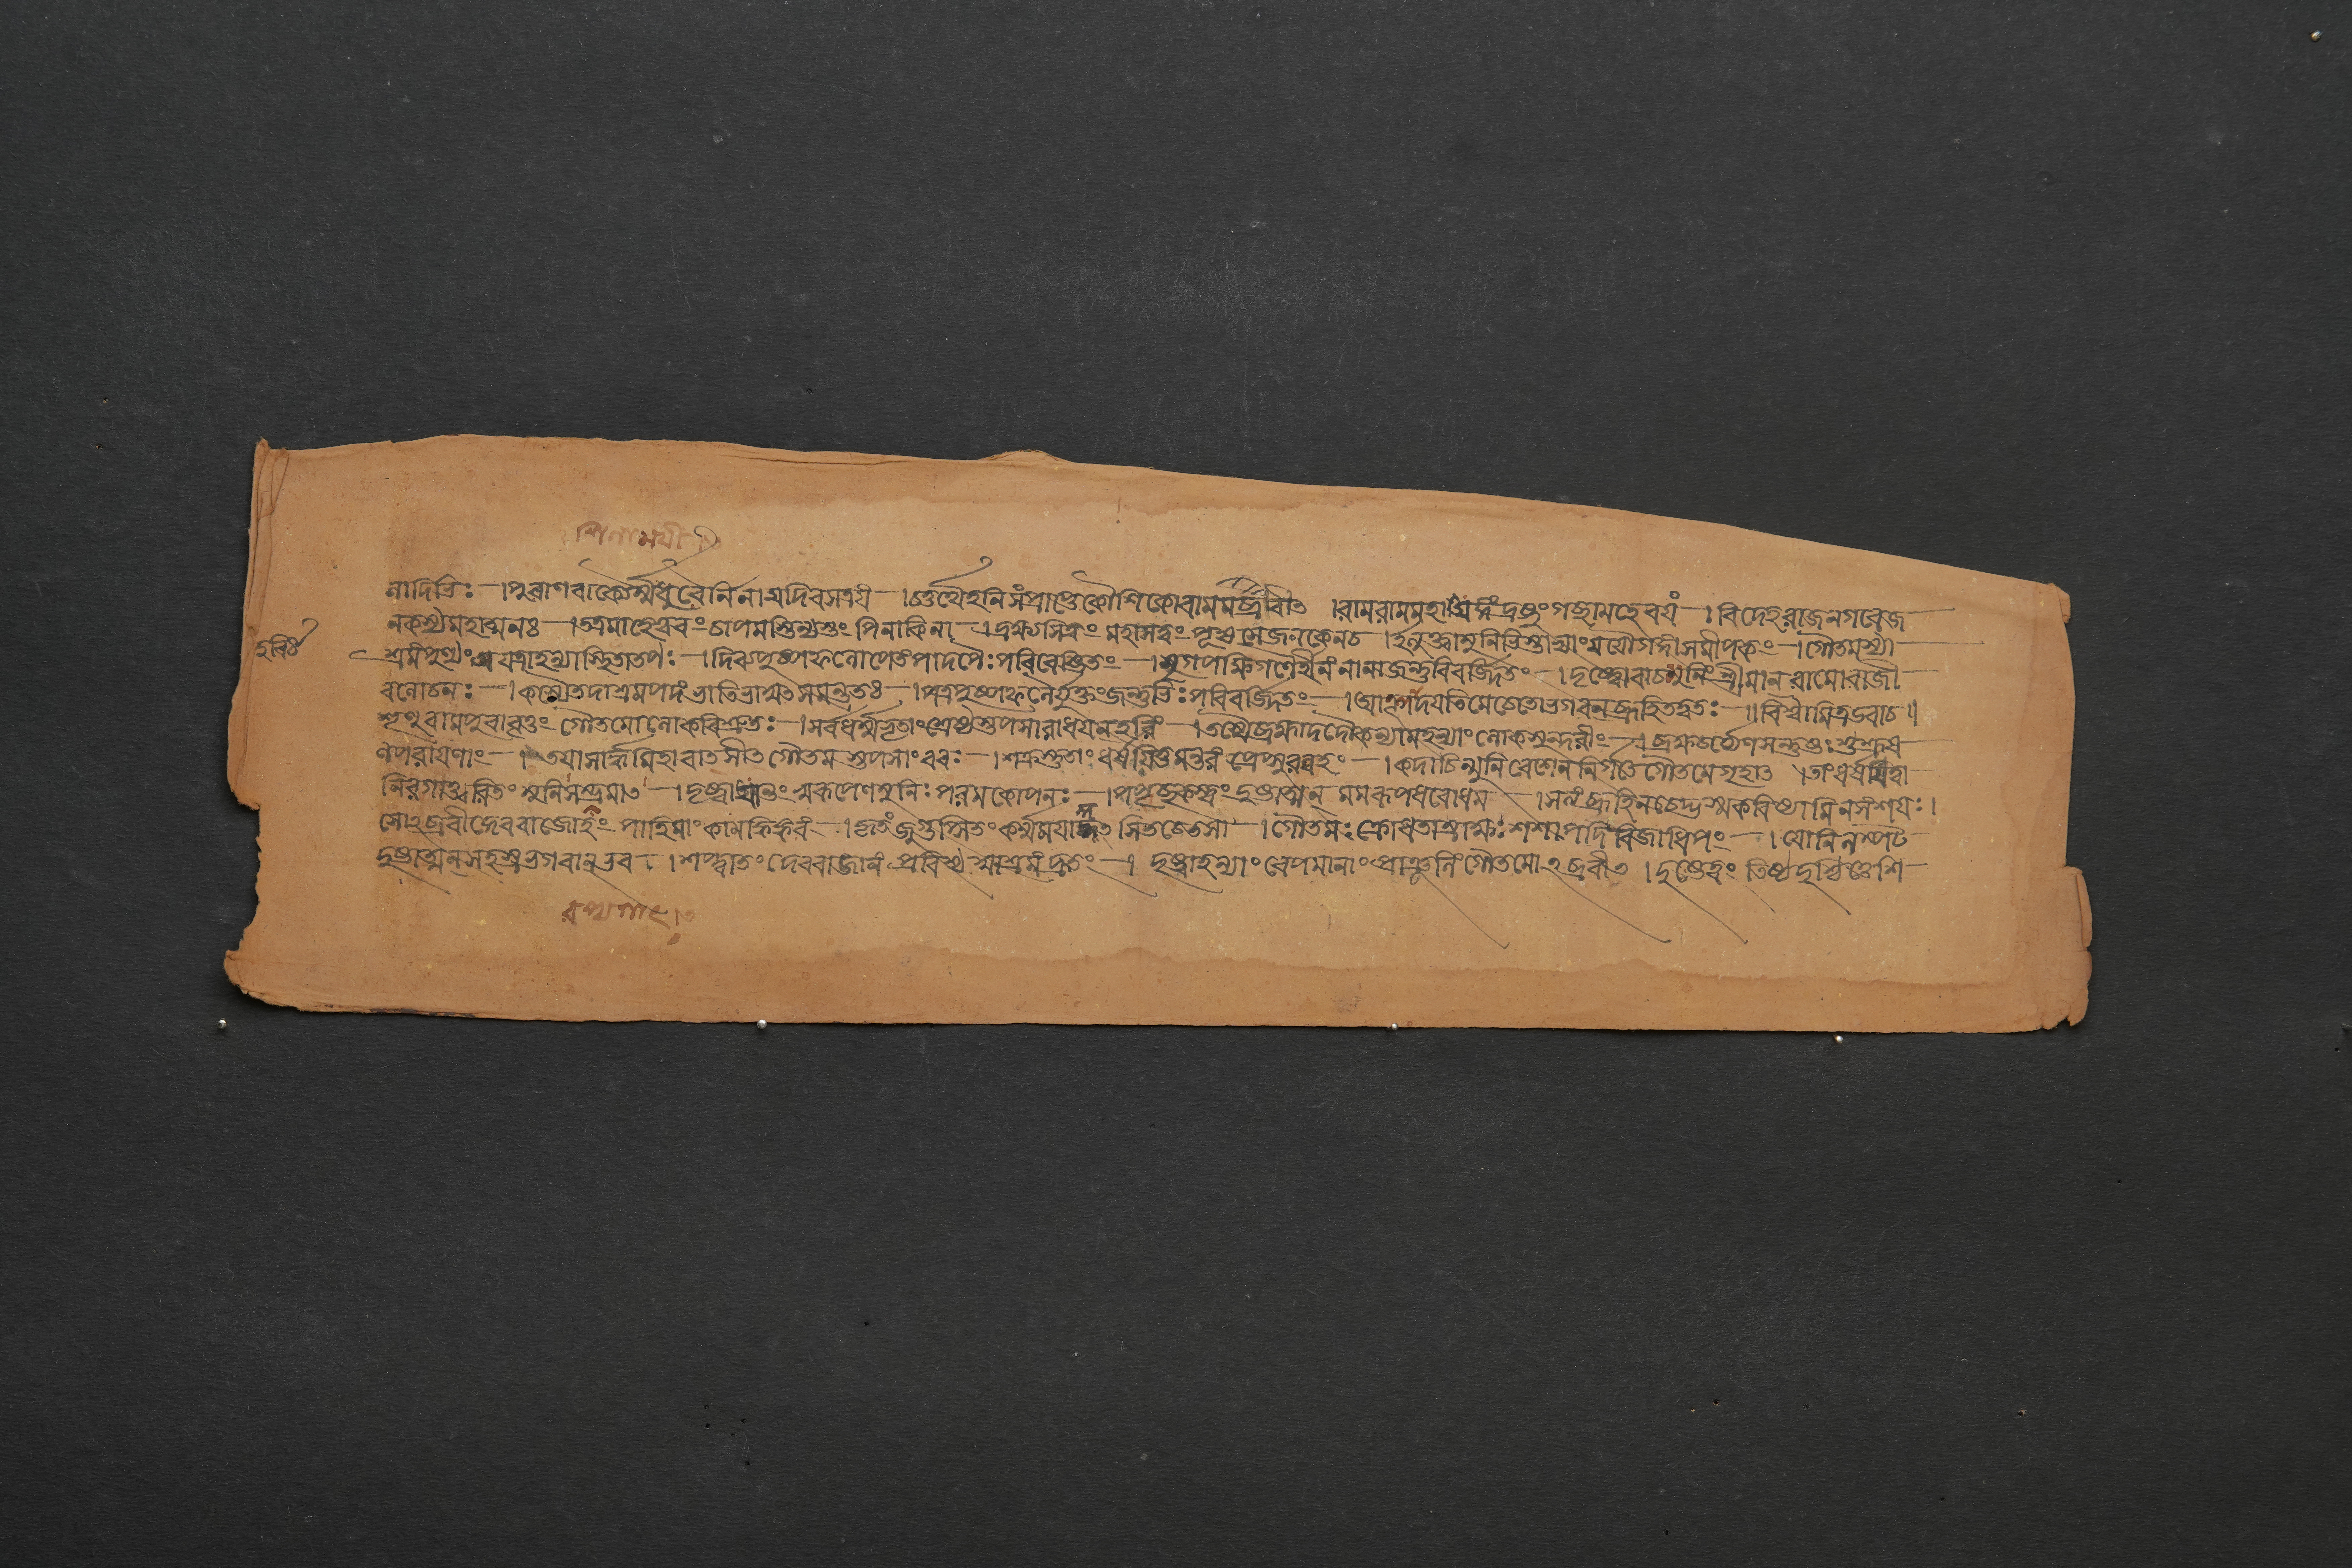 নাদিভিঃ ।পুরাণবাক্যৈর্ম্মধুরৈর্নিনায়দিবসত্রয়ং ।চতুর্থেহনিসংপ্রাপ্তেকৌশিকোরামমব্রবীৎ ।রামরামমহাযজ্ঞং দ্রষ্টুংগচ্ছামহেবয়ং ।বিদেহরাজনগরেজ
নকস্যমহাত্মনঃ ।তত্রমাহেশ্বরংচাপমস্তিন্যস্তং পিনাকিনা ।দ্রক্ষ্যসিত্বং মহাসত্বং পূজ্যসেজনকেনচ ।ইত্যুক্ত্বামুনিভিস্তাভ্যাংযযৌগঙ্গাসমীপকং ।গৌতমস্যা
শ্রমংপুণ্যং যত্রাহল্যাস্থিতাতপঃ ।দিব্যপুষ্পফলোপেতপাদপৈঃপরিবেষ্টিতং ।মৃগপক্ষিগণৈর্হীনং নানাজন্তুবিবর্জ্জিতং ।দৃষ্ট্বোবাচমুনিং শ্রীমান রামোরাজী
বলোচনঃ ।কস্যৈতদাশ্রমপদং ভাতিভাস্বৎসমন্ততঃ ।পত্রপুষ্পফলৈর্যুক্তংজন্তুভিঃপরিবর্জ্জিতং ।আহ্লাদয়তিমেচেতোভগবন্ব্রূহিতত্বতঃ ॥বিশ্বামিত্রউবাচ॥
শৃণুরামপুরাবৃত্তং গৌতমোলোকবিশ্রুতঃ ।সর্বধর্ম্মভৃতাংশ্রেষ্ঠস্তপসারাধয়নহরিং ।তস্মৈব্রহ্মাদদৌকন্যামহল্যাংলোকসুন্দরীং ।ব্রহ্মচর্য্যেণসন্তুষ্টঃশুশ্রূষ
ণপরায়ণাং ।তয়াসার্দ্ধমিহাবাতসীৎগৌতমস্তপসাংবরঃ ।শক্রস্তুতাং ধর্ষয়িতুমন্তরং প্রেপ্সুরন্বহং ।কদাচিন্মুনিবেশেননির্গতেগৌতমেগৃহাৎ ।তাংধর্ষয়িত্বা
নিরগাত্ত্বরিতং মুনিসম্ভ্রমাৎ ।দৃষ্ট্বায়ান্তং স্বরূপেণমুনিঃপরমকোপনঃ ।পপ্রচ্ছকস্ত্বং দুষ্টাত্মন্ মমরূপধরোধম ।সত্যংব্রূহিনচেদ্ভস্মকরিষ্যামিনসংশয়ঃ।
সোঽব্রবীদ্দেবরাজোহং পাহিমাং কামকিঙ্করং ।কৃতংজুগুপ্সিতং কর্ম্মময়াকুৎসিতচেতসা ।গৌতমঃক্রোধতাম্রাক্ষঃশশাপদিবিজাধিপং ।যোনিলম্পট
দুষ্টাত্মন্সহস্রভগবান্ভব ।শপ্ত্বাতং দেবরাজানং প্রবিশ্য স্বাশ্রমং দ্রুতং । দৃষ্ট্বাহল্যাং বেপমানাং প্রাঞ্জলিং গৌতমোঽব্রবীৎ ।দুষ্টেত্বং তিষ্ঠদুর্বৃত্তেশি